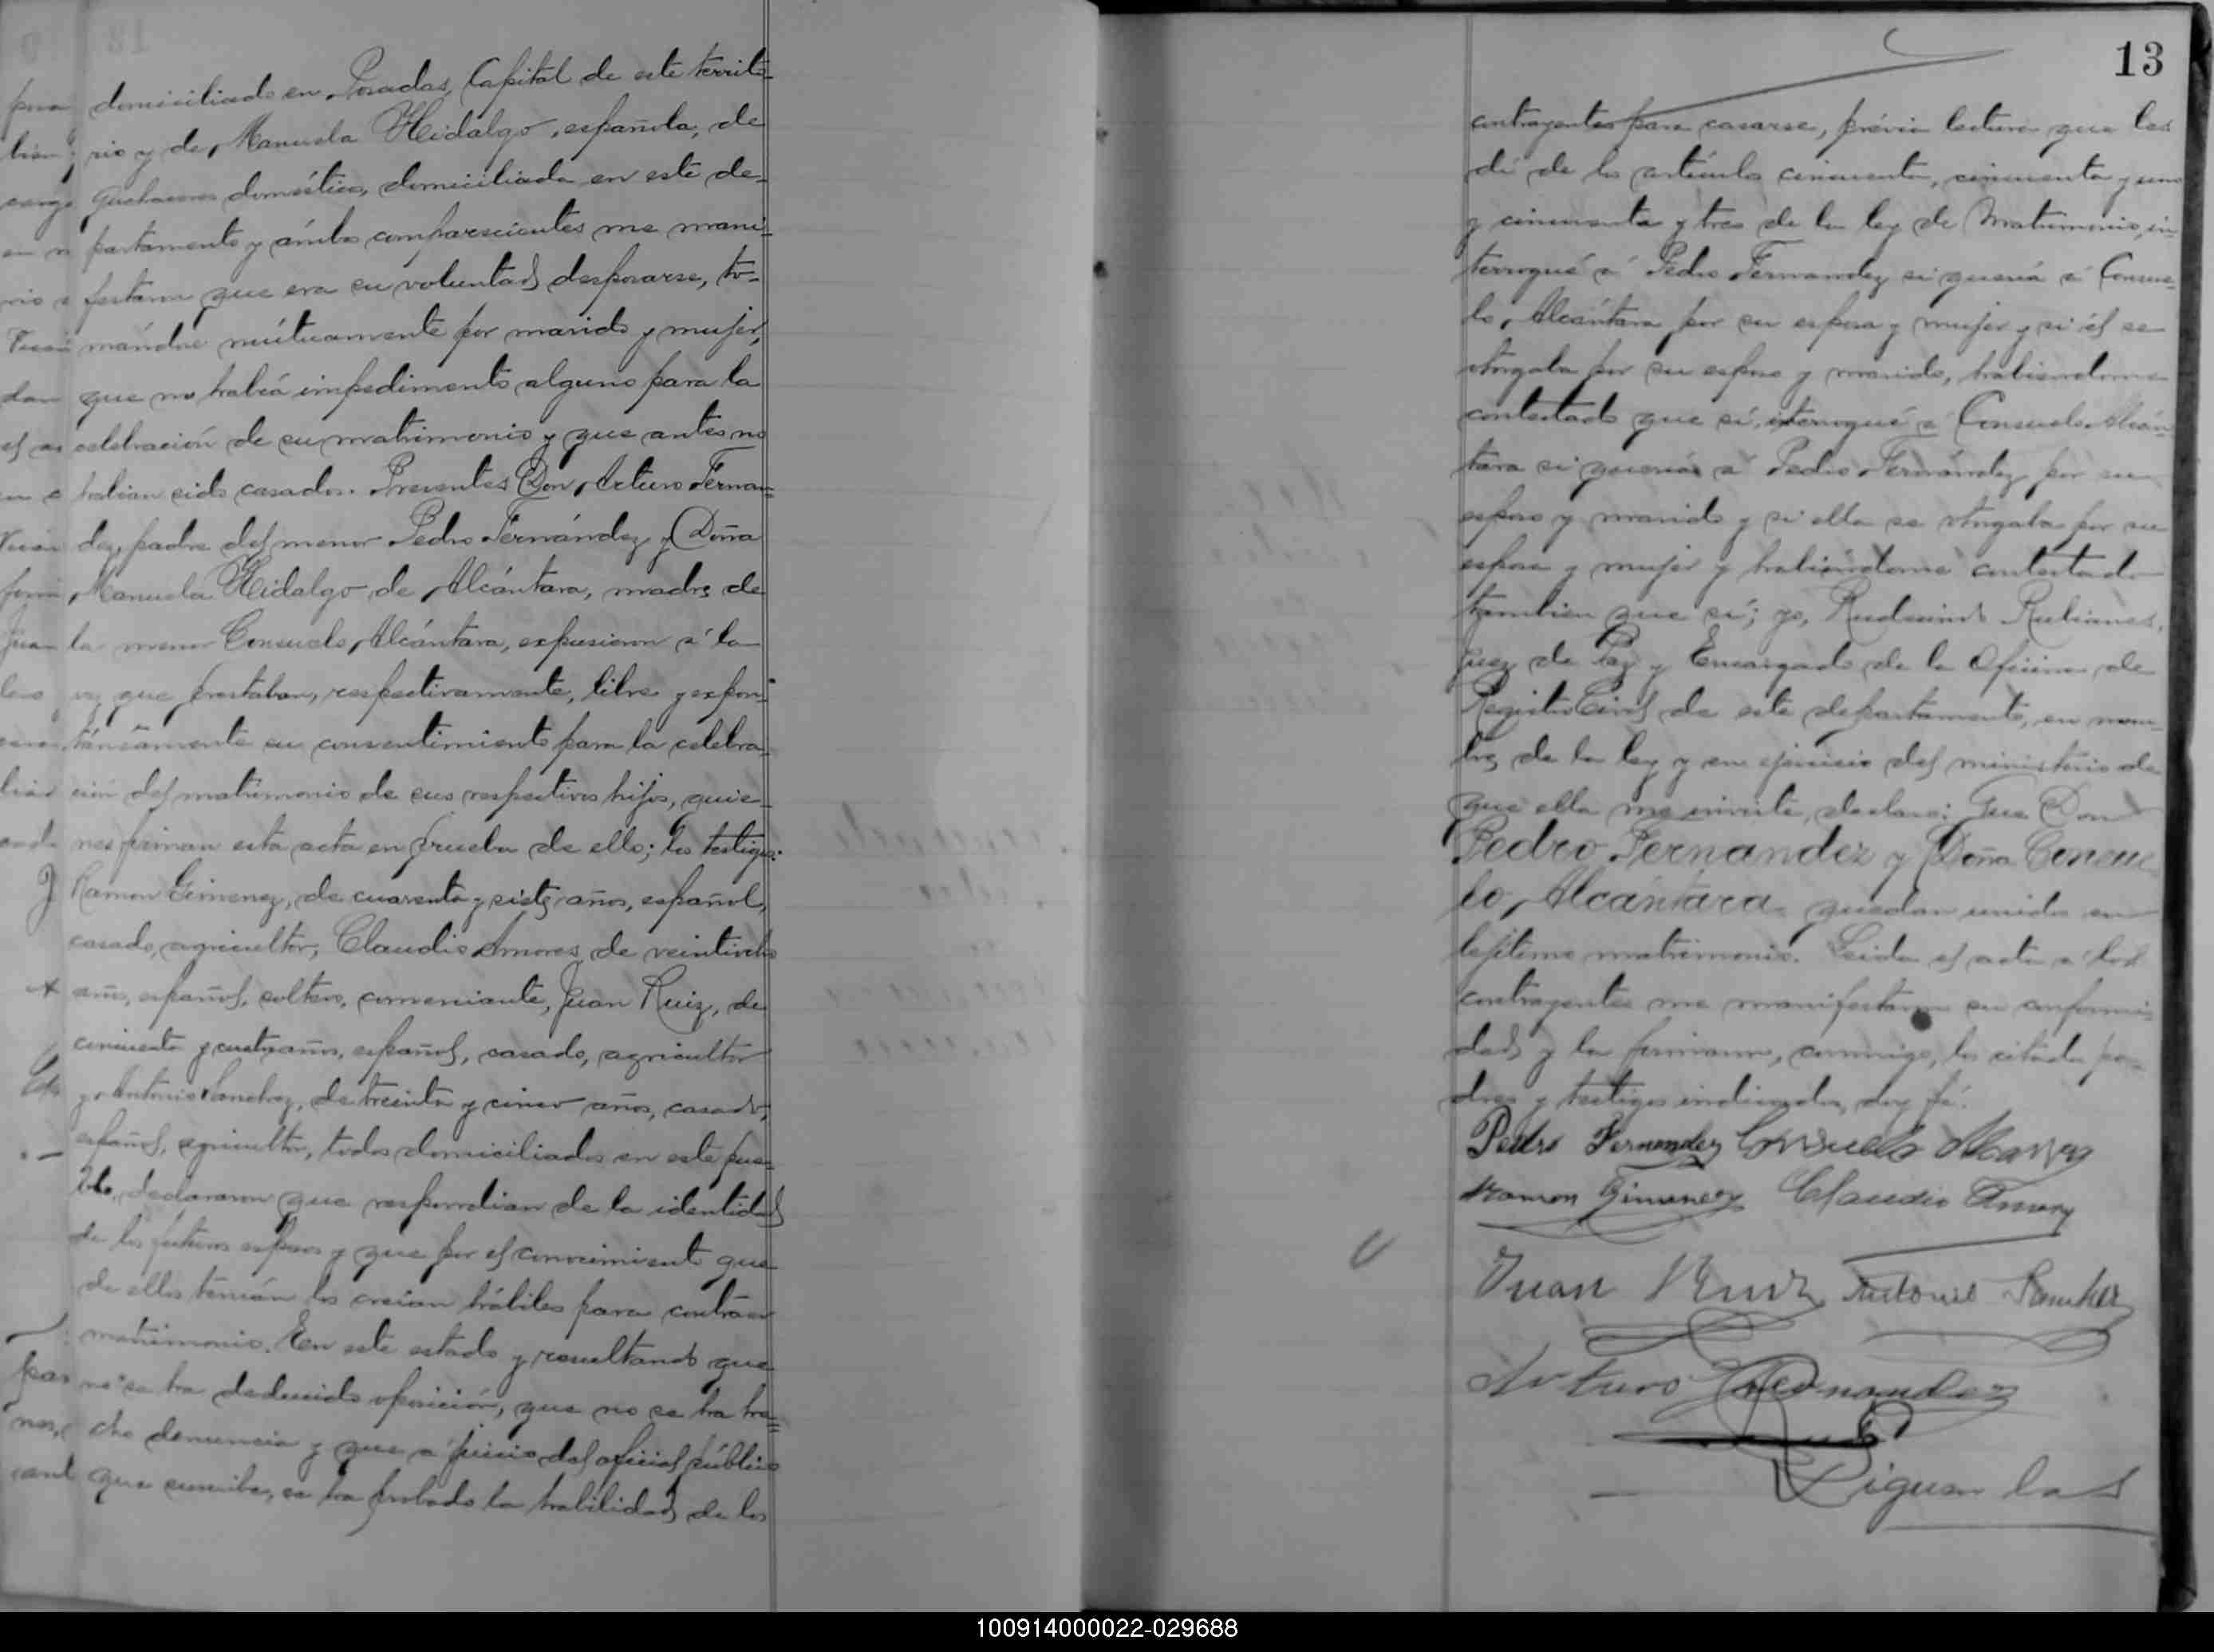 domiciliado en Posadas, Capital de este territo-
rio y de Manuela Hidalgo, española, de
quehaceres domésticos, domiciliada en este de-
partamento y ámbos comparecientes me mani-
festaron que era su voluntad desposarse, to-
mándose mútuamente por marido y mujer,
que no había impedimento alguno para la
celebración de su matrimonio y que antes no
habian sido casados. Presentes Don Arturo Fernan-
dez, padre del menor Pedro Fernández y Doña
Manuela Hidalgo de Alcántara, madre de
la menor Consuelo Alcántara, expusieron á la
vez que prestaban, respectivamente, libre y expon-
táneamente su consentimiento para la celebra-
ción del matrimonio de sus respectivos hijos, quie-
nes firman esta acta en prueba de ello; los testigos:
Ramon Gimenez, de cuarenta y siete años, español,
casado, agricultor, Claudio Amores, de veintiocho
años, español, soltero, comerciante, Juan Ruiz, de
cincuenta y cuatro años, español, casado, agricultor
y Antonio Sanchez, de treinta y cinco años, casado,
español, agricultor, todos domiciliados en este pue-
blo, declararon que respondian de la identidad
de los futuros esposos y que por el conocimiento que
de ellos tenían los creían hábiles para contraer
matrimonio. En este estado y resultando que
no se ha deducido oposición, que no se ha he-
cho denuncia y que a juicio del oficial público
que suscribe, se ha probado la habilidad de los
13
contrayentes para casarse, prévia lectura que les
dí de los artículos cincuenta, cincuenta y uno
y cincuenta y tres de la ley de Matrimonio, in-
terrogué á Pedro Fernandez si quería á Consue-
lo Alcántara por su esposa y mujer y si él se
otorgaba por su esposo y marido, habiendome
contestado que sí, interrogué á Consuelo Alcán-
tara si quería á Pedro Fernández por su
esposo y marido y si ella se otorgaba por su
esposa y mujer y habiéndome contestado
tambien que sí; yo, Rudecindo Rubianes,
Juez de Paz y Encargado de la Oficina de
Registro Civil de este departamento, en nom-
bre de la ley y en ejercicio del ministerio de
que ella me inviste, declaro: Que Don
Pedro Fernandez y Doña Consue-
lo Alcántara quedan unidos en
lejítimo matrimonio. Leida el acta a los
contrayentes me manifestaron su conformi-
dad y la firmaron, conmigo, los citados pa-
dres y testigos indicados, doy fé.
Pedro Fernandez Consuelo
Ramon Gimenez Claudio Amores
Juan Ruiz Antonio Sanchez
Arturo Fernandez
Siguen las
100914000022-029688